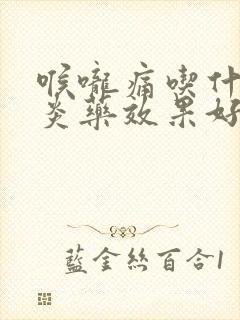 喉嚨痛喫什
炎藥效果好
藍金絲百合1